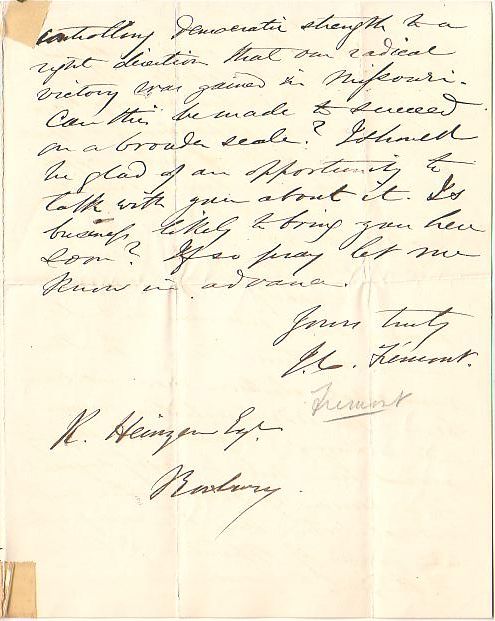 controlling democratic strength to a
right direction that our radical
victory was gained in Missouri.
Can this be made to succeed
on a broader scale? I should
be glad of an opportunity to
talk with you about it. Is
business likely to bring you here
soon? If so pray let me
know in advance.
Yours truly
J. C. Frémont.
Fremont
K. Heinzen Esq.
Roxbury.